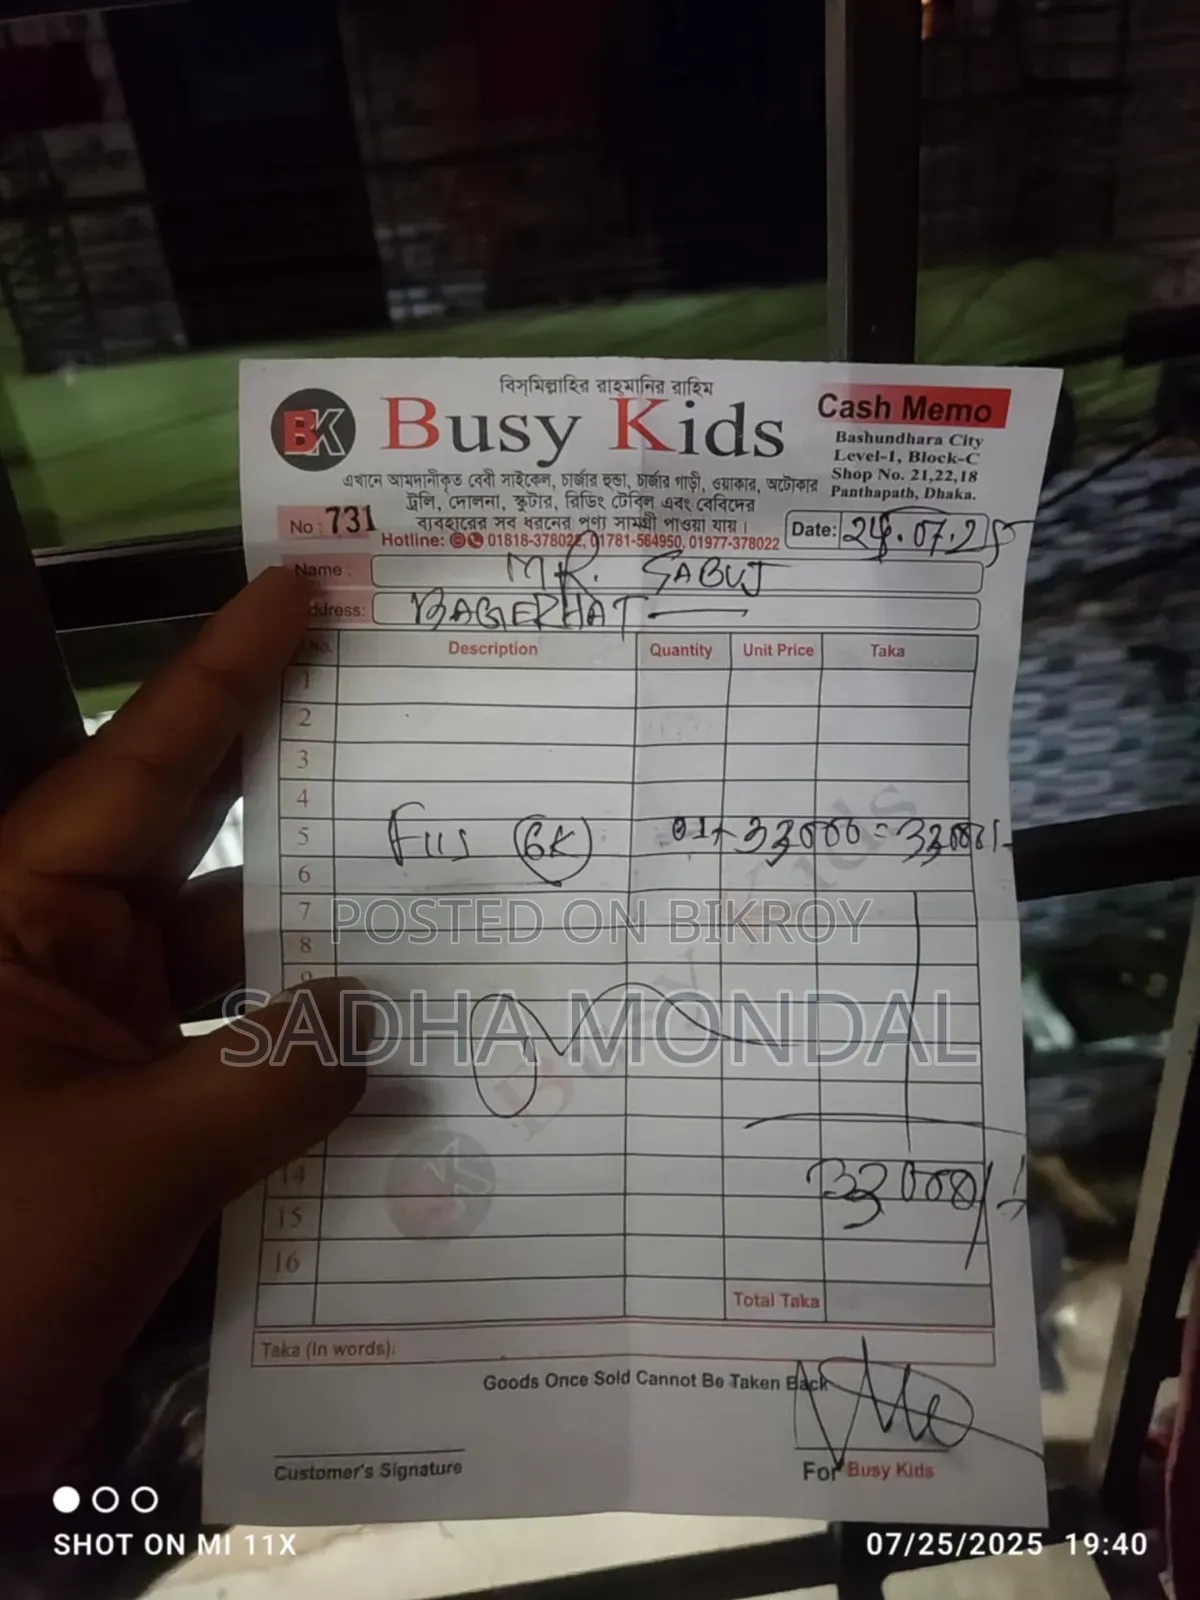 বিস্‌মিল্লাহির রাহ্‌মানির রাহিম
BK
Busy Kids
Cash Memo
Bashundhara City
Level-1, Block-C
Shop No. 21,22,18
Panthapath, Dhaka.
এখানে আমদানীকৃত বেবী সাইকেল, চার্জার হুন্ডা, চার্জার গাড়ী, ওয়াকার, অটোকার
ট্রলি, দোলনা, স্কুটার, রিডিং টেবিল এবং বেবিদের
ব্যবহারের সব ধরনের পণ্য সামগ্রী পাওয়া যায়।
No : 731
Hotline: 01818-378022, 01781-564950, 01977-378022
Date: .07.25
Name : MR. SABUJ
Address: BAGERHAT
Description Quantity Unit Price Taka
1
2
3
4
5 (6K) 01 33000 = 33000/-
6
7
POSTED ON BIKROY
8
9
SADHA MONDAL
Busy Kids
BK
14 33000/-
15
16
Total Taka
Taka (In words):
Goods Once Sold Cannot Be Taken Back
Customer's Signature
For Busy Kids
SHOT ON MI 11X
07/25/2025 19:40